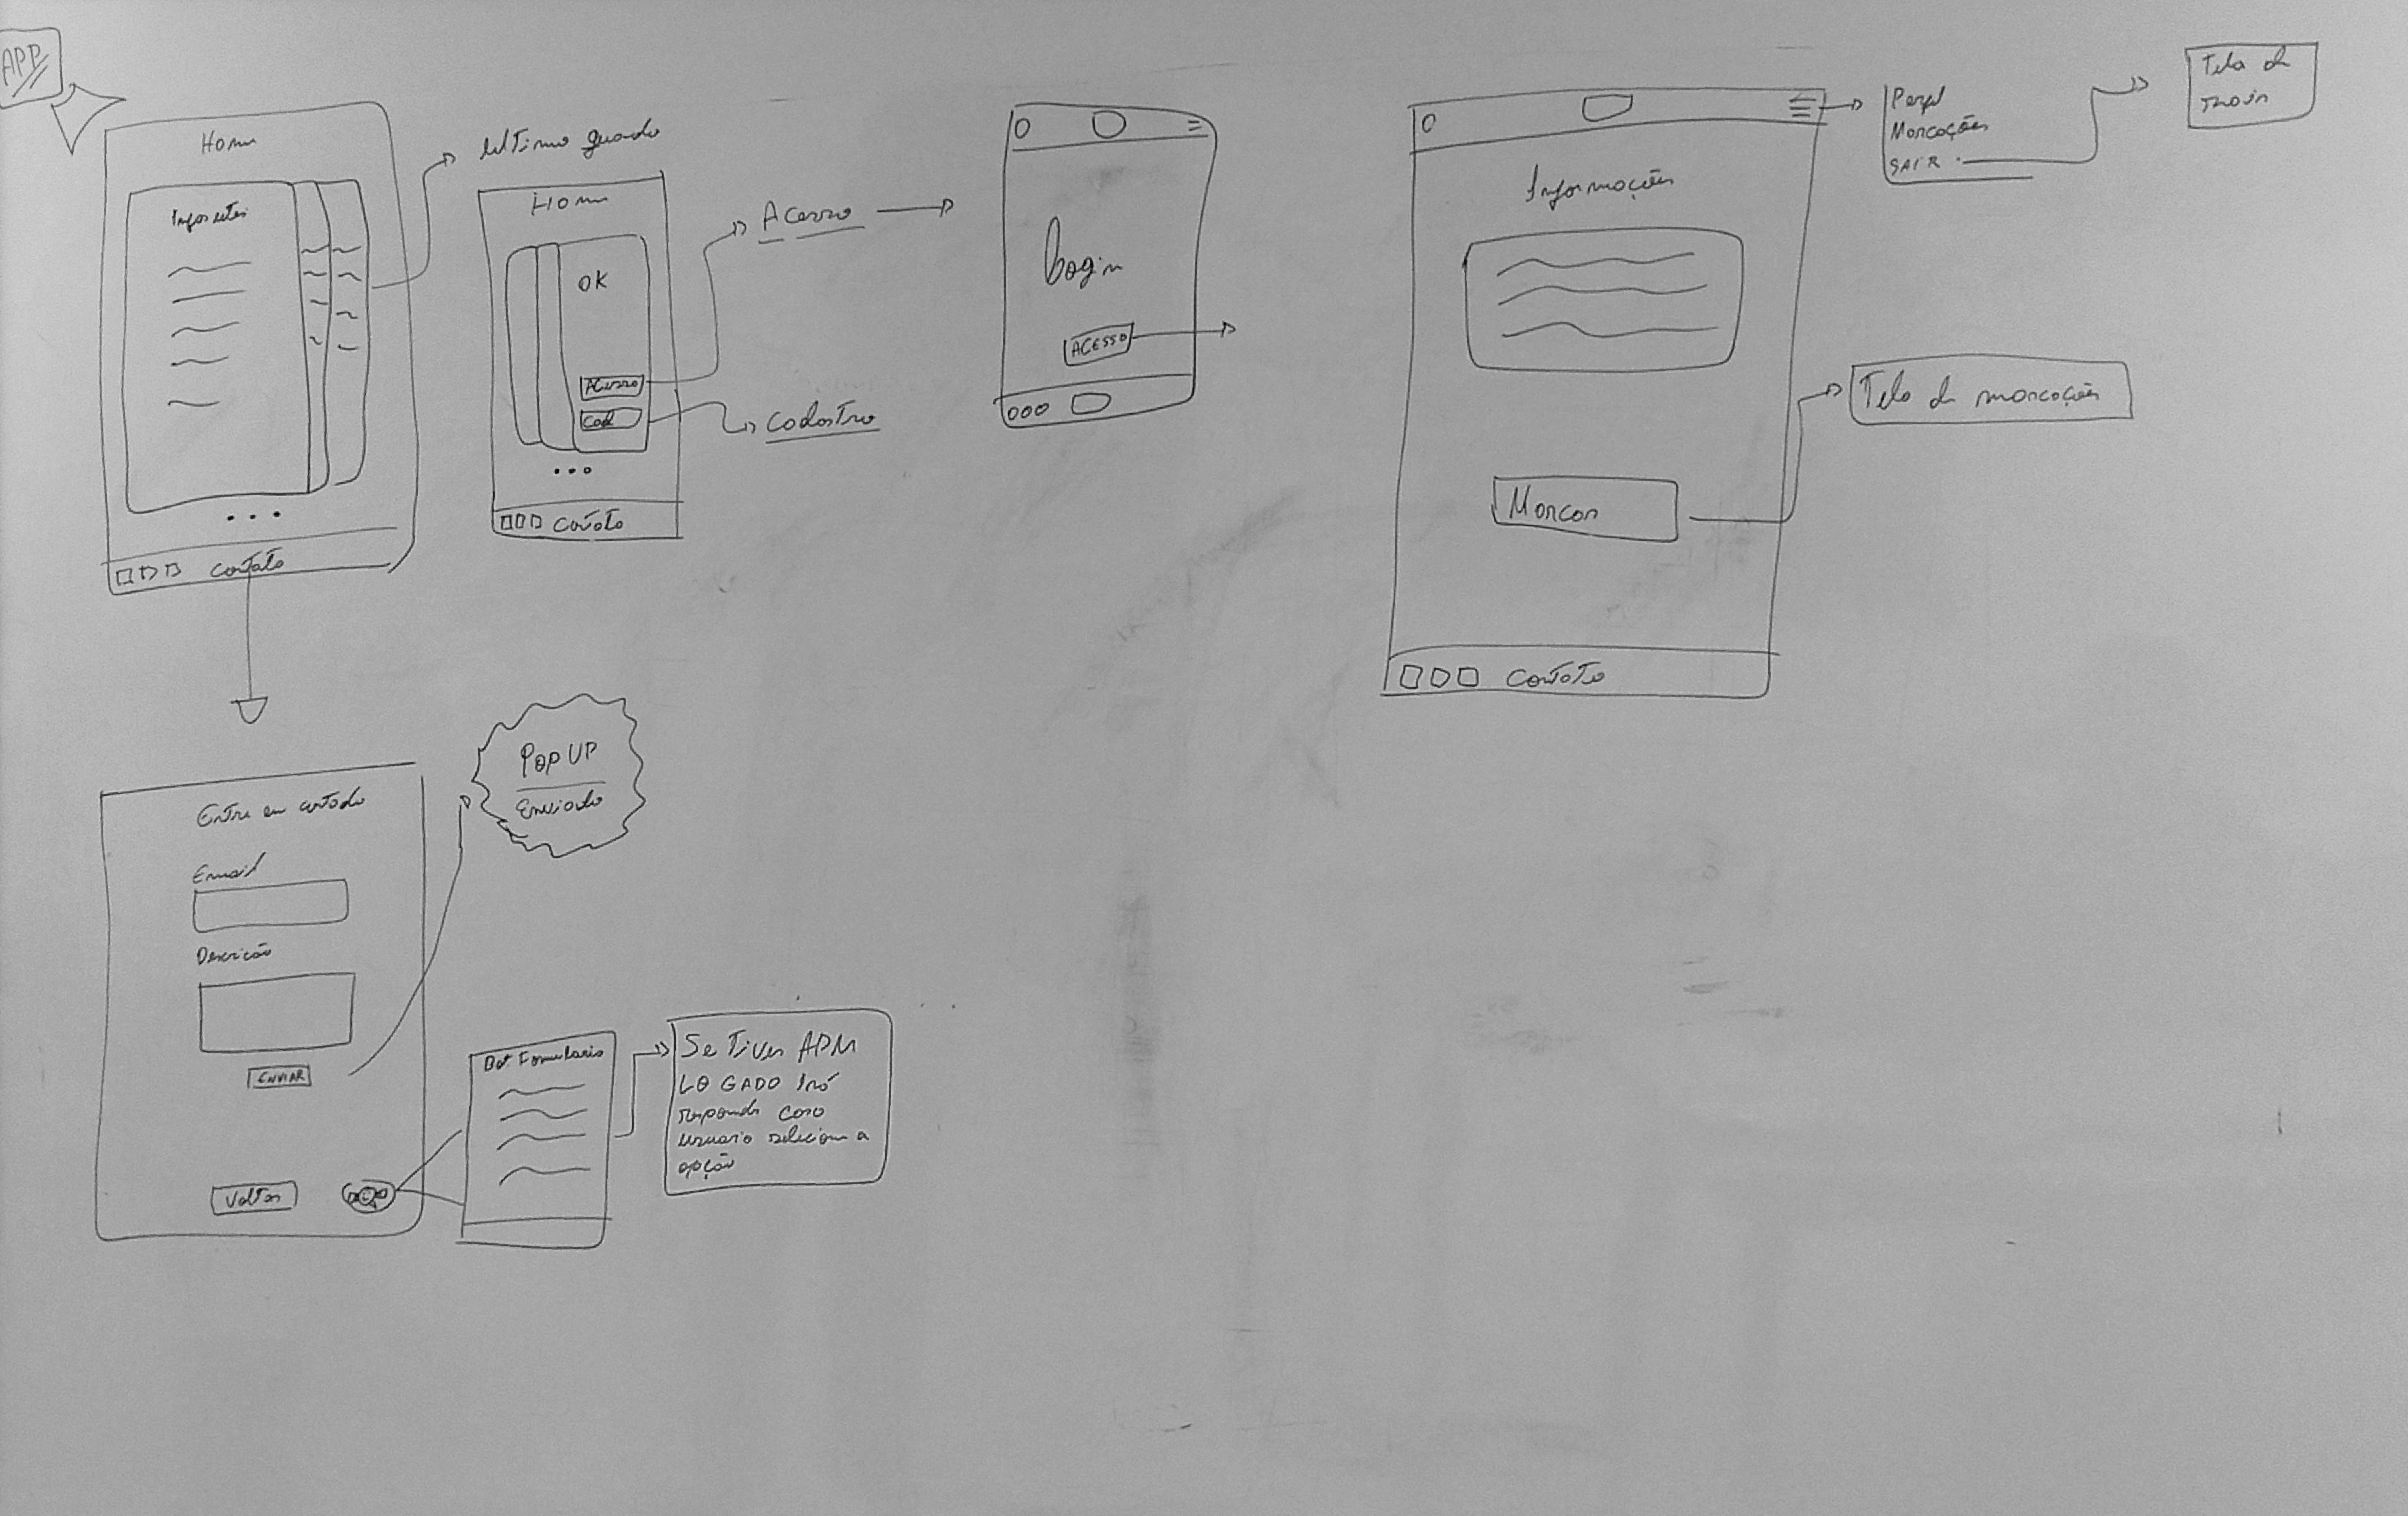 APP
Home
Ultimo quado
Home
OK
Acesso
Cad
Contato
Contato
Acesso
Cadastro
Login
ACESSO
Informações
Marcar
Contato
Perfil
Marcações
SAIR
Tela de
Tela de marcações
Entre em contado
Email
Descricão
ENVIAR
Voltar
POP UP
Enviado
Bot Formulario
Se Tiver ADM
LOGADO Irá
responde caso
usuario selecione a
opção